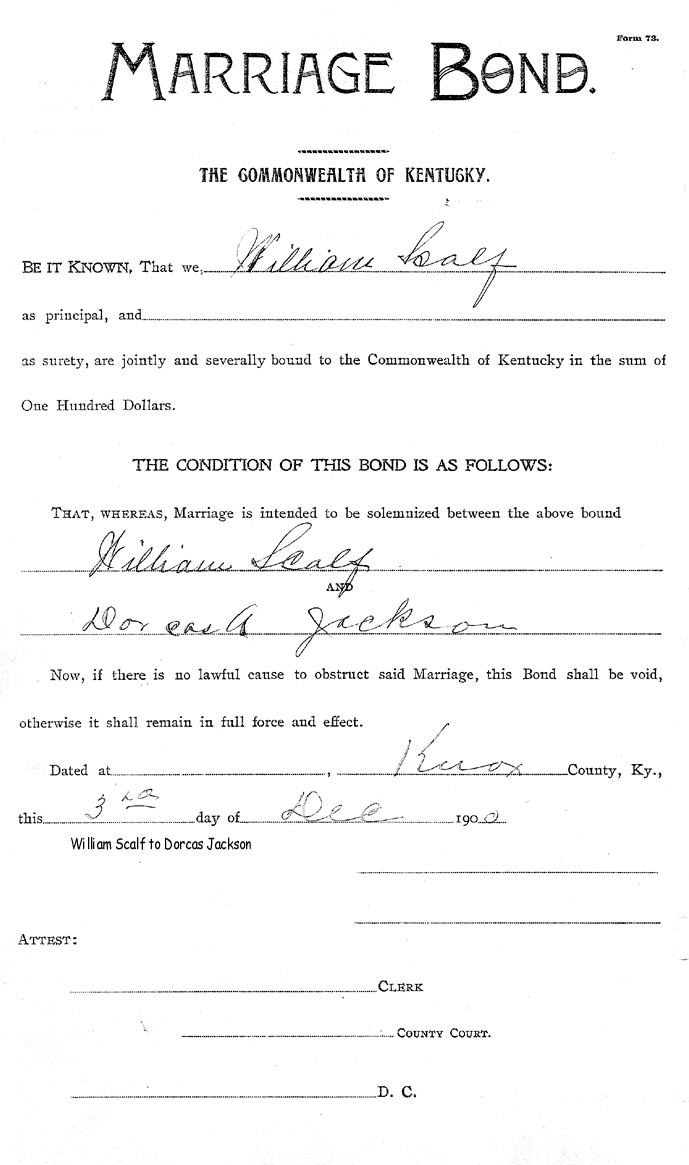 Form 73.
MARRIAGE BOND.
THE COMMONWEALTH OF KENTUCKY.
BE IT KNOWN, That we, William Scalf
as principal, and
as surety, are jointly and severally bound to the Commonwealth of Kentucky in the sum of
One Hundred Dollars.
THE CONDITION OF THIS BOND IS AS FOLLOWS:
THAT, WHEREAS, Marriage is intended to be solemnized between the above bound
William Scalf
AND
Dorcas A Jackson
Now, if there is no lawful cause to obstruct said Marriage, this Bond shall be void,
otherwise it shall remain in full force and effect.
Dated at , Knox County, Ky.,
this 3 rd day of Dec 1900
William Scalf to Dorcas Jackson
ATTEST:
CLERK
COUNTY COURT.
D. C.